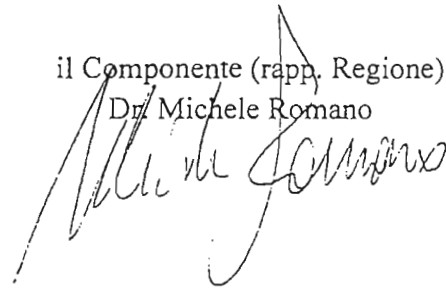 il Componente (rapp. Regione)
Dr. Michele Romano
Michele Romano